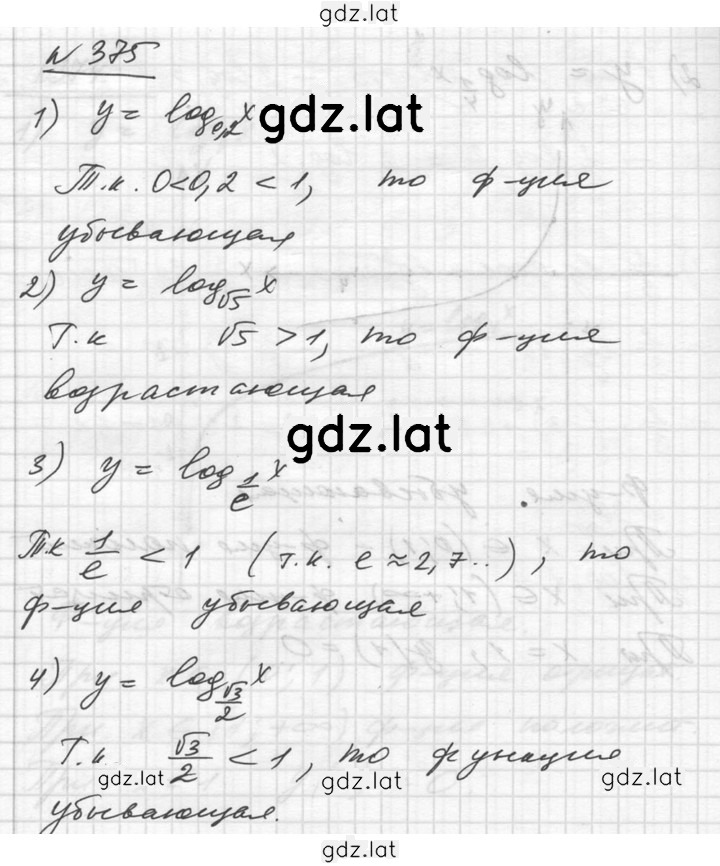 gdz.lat
№ 375
1) y = log₀,₂ x gdz.lat
Т.к. 0<0,2 < 1, то ф-ция
убывающая
2) y = log_√5 x
Т.к √5 > 1, то ф-ция
возрастающая
gdz.lat
3) y = log_1/e x
Т.к 1/e < 1 (т.к. e ≈ 2,7..), то
ф-ция убывающая
4) y = log_√3/2 x
Т.к √3/2 < 1, то функция
gdz.lat gdz.lat gdz.lat
убывающая.
gdz.lat